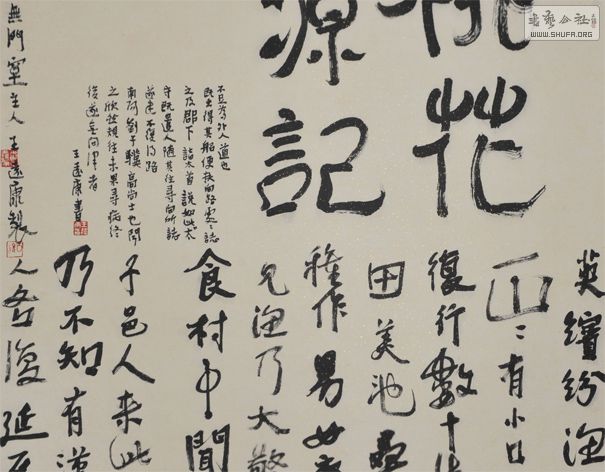 書藝公社
WWW.SHUFA.ORG
桃花
源記
英繽紛漁
山〻有小口
復行數十
田美池
種作男女
見漁乃大驚
食村中聞
子邑人來此
乃不知有漢
人各復延至
不足為外人道也
既出得其船便扶向路處〻誌
之及郡下詣太首說如此太
守既遣人隨其往尋向所誌
遂迷不復得路
南陽劉子驥高尚士也聞
之欣然規往未果尋病終
後遂無問津者
王遠康書
無門室主人王遠康製